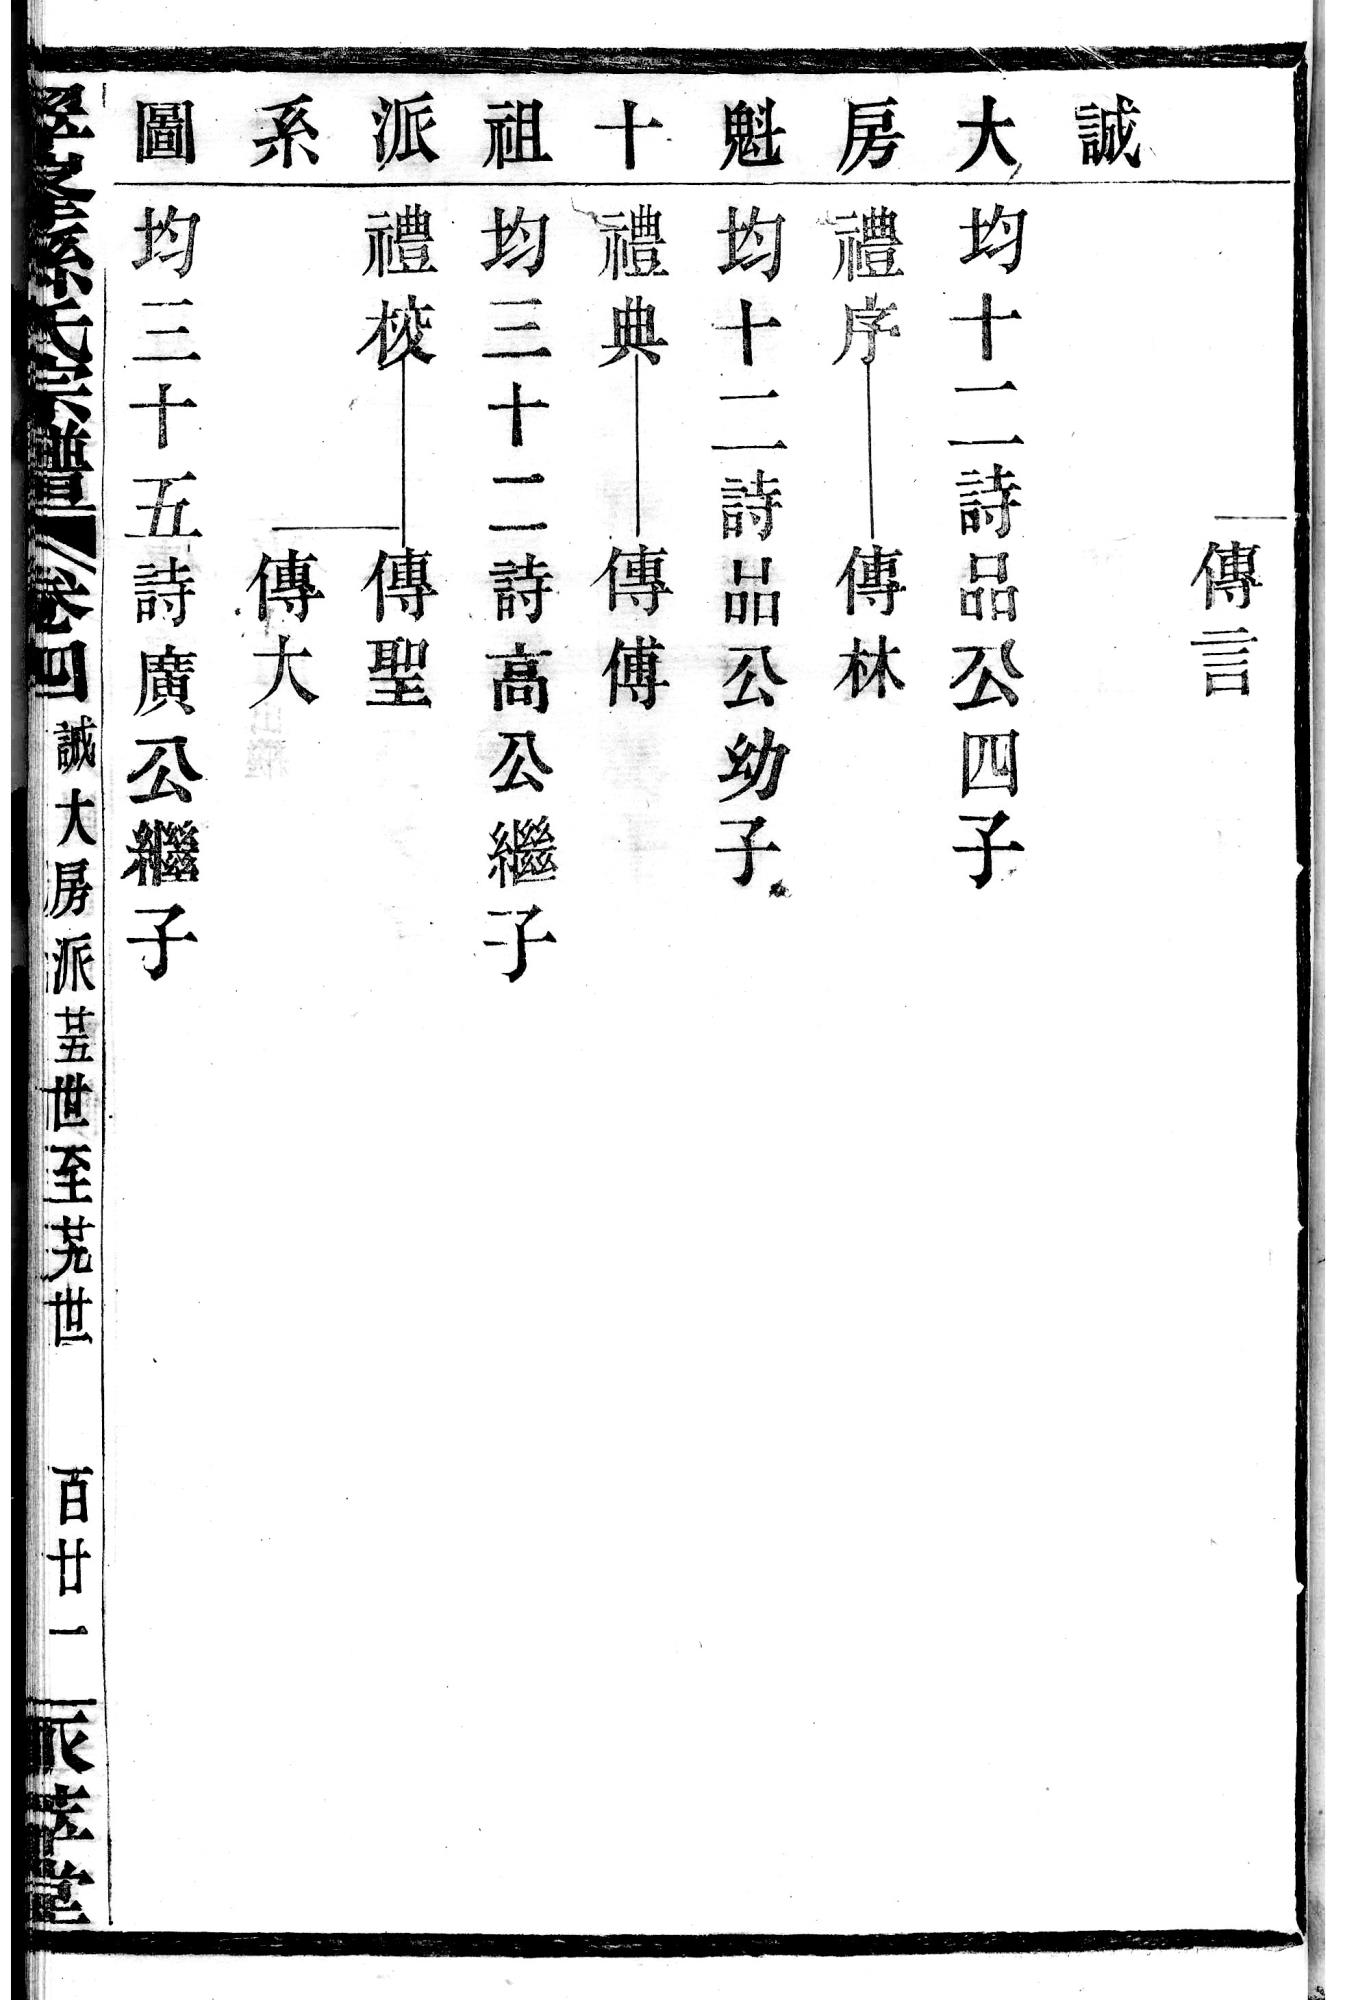 誠大房魁十祖派系圖
傳言
均十二詩品公四子
禮序 傳林
均十二詩品公幼子
禮典 傳傅
均三十二詩高公繼子
禮校 傳聖
傳大
均三十五詩廣公繼子
孫氏宗譜 卷四 誠大房派 廿五世至廿九世 百廿一 堂